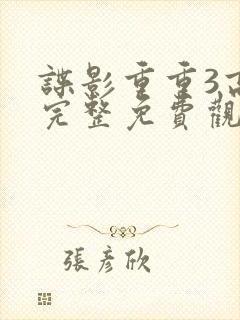 諜影重重3高
完整免費觀
張彥欣